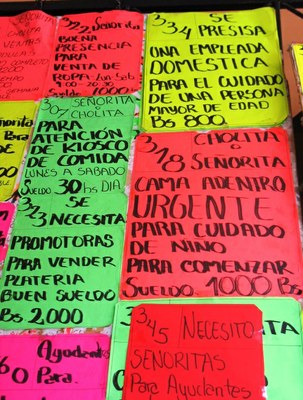 SEÑORITA
CHOLITA
322 Señorita
BUENA
PRESENCIA
PARA
VENTA DE
ROPA Lun Sab
9:00 - 20:30
Sueldo 1000
334 SE
PRESISA
UNA EMPLEADA
DOMESTICA
PARA EL CUIDADO
DE UNA PERSONA
MAYOR DE EDAD
Bs 800
307 SEÑORITA
CHOLITA
PARA
ATENCIÓN
DE KIOSCO
DE COMIDA
LUNES A SABADO
SUELDO 30 Bs DIA
323 SE
NECESITA
PROMOTORAS
PARA VENDER
PLATERIA
BUEN SUELDO
Bs 2,000
318 CHOLITA
O
SEÑORITA
CAMA ADENTRO
URGENTE
PARA CUIDADO
DE NINO
PARA COMENZAR
SUELDO 1000 Bs
345 NECESITO
SEÑORITAS
Para Ayudantes
60 Ayudante
Para